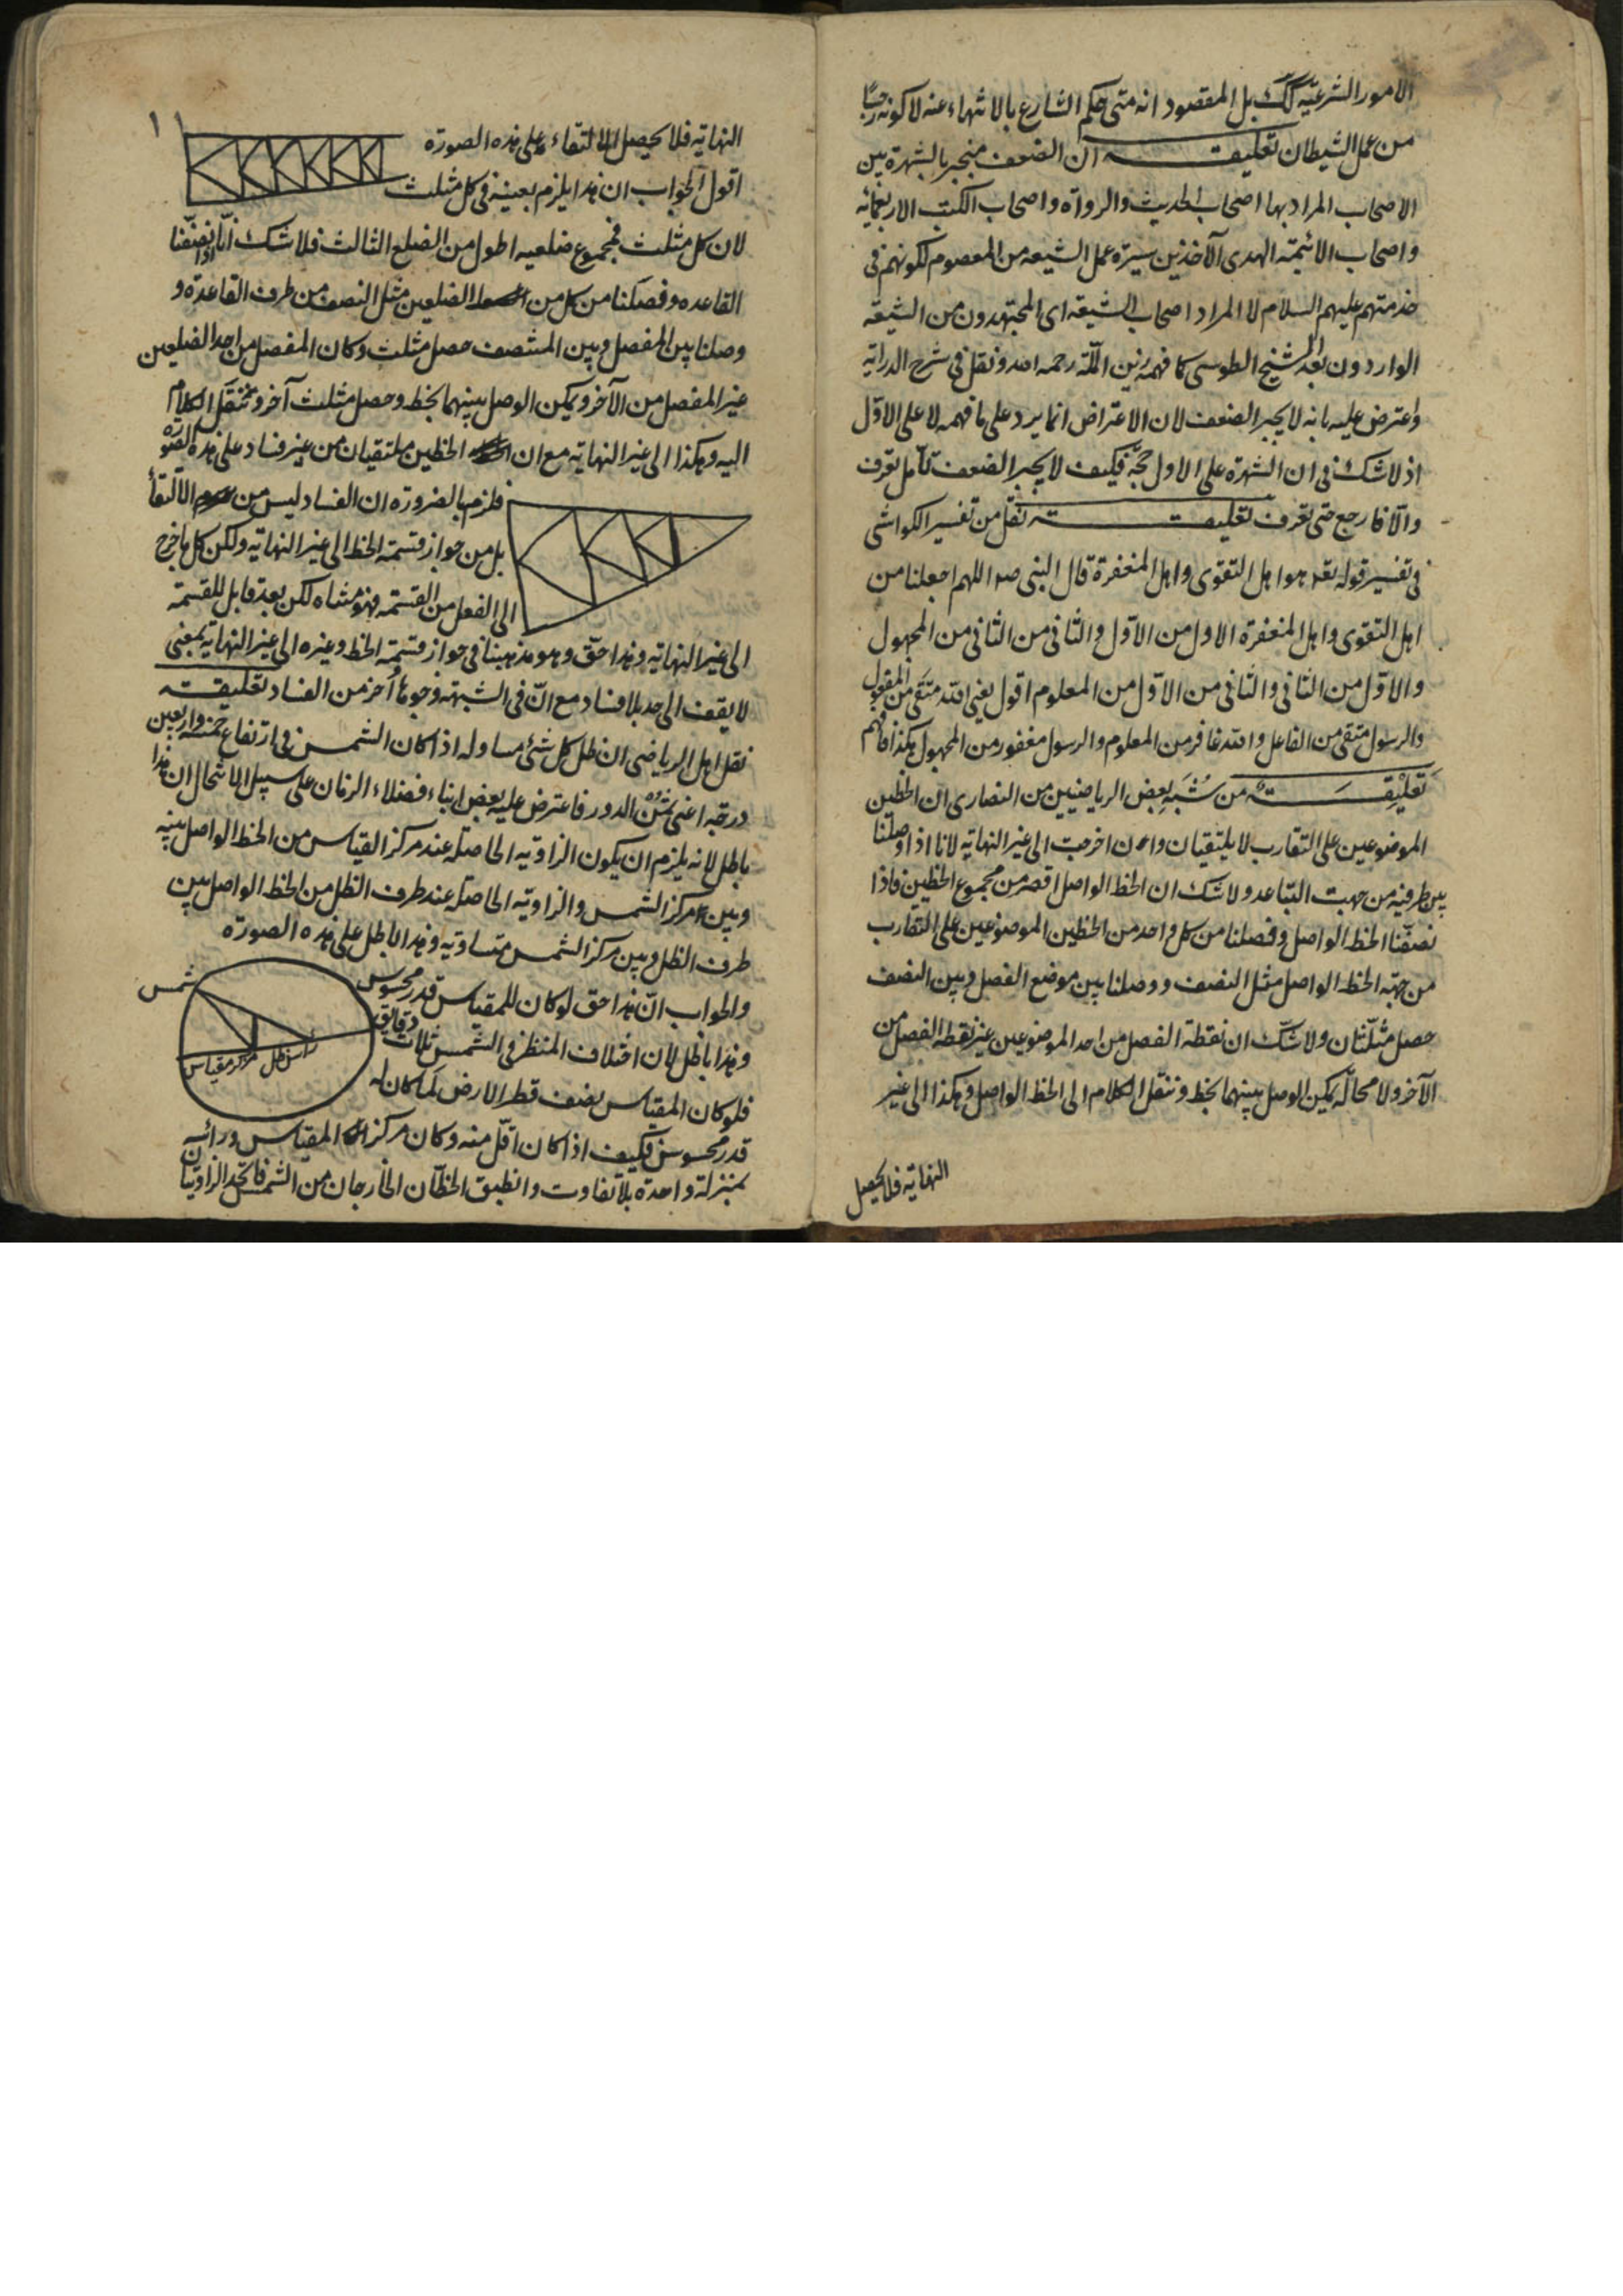 الامور الشرعيّه كك بل المقصود انه متى حكم الشارع بالانتهاء عنه لا كونه رجسًا
من عمل الشيطان تعليقة ان الضعف منجبر بالشهرة بين
الاصحاب المراد بها اصحاب الحديث والرواة واصحاب الكتب الاربعمائه
واصحاب الائمة الهدى الآخذين سيرة عمل الشيعه من المعصوم لكونهم فى
خدمتهم عليهم السلام لا المراد اصحاب الشيعة اى المجتهدون من الشيعة
الواردون بعد الشيخ الطوسى كما فهمه زين الملّة رحمه الله ونقل فى شرح الدراية
واعترض عليه بانه لا يجبر الضعف لان الاعتراض انما يرد على ما فهمه لا على الاوّل
اذ لا شك فى ان الشهرة على الاول حجّة فكيف لا يجبر الضعف تأمل تعرف
والّا فارجع حتى تعرف تعليقة نقل من تفسير الكواشى
فى تفسير قوله تعه هو اهل التقوى واهل المغفرة قال النبى صه اللهم اجعلنا من
اهل التقوى واهل المغفرة الاول من الاوّل والثانى من الثانى من المجهول
والاوّل من الثانى والثانى من الاوّل من المعلوم اقول يعنى الله متّقى من المفعول
والرسول متقى من الفاعل والله غافر من المعلوم والرسول مغفور من المجهول هكذا فافهم
تَعليْقَة من شُبَه بعض الرياضيين من النصارى ان الخطين
الموضوعين على التقارب لا يلتقيان وان اخرجت الى غير النهاية لانا اذا وصلنا
بين طرفيه من جهت التباعد ولا شك ان الخط الواصل اقصر من مجموع الخطين فاذا
نصفنا الخط الواصل وفصلنا من كل واحد من الخطين الموضوعين على التقارب
من جهة الخط الواصل مثل النصف ووصلنا بين موضع الفصل وبين النصف
حصل مثلّثان ولا شك ان نقطة الفصل من احد الموضوعين غير نقطة الفصل من
الآخر ولا محالة يمكن الوصل بينهما بخط وننقل الكلام الى الخط الواصل وهكذا الى غير
النهاية فلا يحصل
١١
النهاية فلا يحصل الالتقاء على هذه الصورة
اقول الجواب ان هذا يلزم بعينه فى كل مثلث
لان كل مثلث فمجموع ضلعيه اطول من الضلع الثالث فلا شك انّا اذا نصّفنا
القاعده وفصلنا من كل من الضلعين مثل النصف من طرف القاعدة و
وصلنا بين المفصل وبين المنتصف حصل مثلث وكان المفصل من احد الضلعين
غير المفصل من الآخر ويمكن الوصل بينهما بخط وحصل مثلث آخر وننقل الكلام
اليه وهكذا الى غير النهاية مع ان الخطين ملتقيان من غير فساد على هذه الصورة
فلزم بالضرورة ان الفساد ليس من الالتقاء
بل من جواز قسمة الخط الى غير النهاية ولكن كل ما خرج
الى الفعل من القسمة فهو متناه لكن بعد قابل للقسمة
الى غير النهاية وهذا حقّ وهو مذهبنا فى جواز قسمة الخط وغيره الى غير النهاية بمعنى
لا يقف الى حد بلا فساد مع انّ فى الشبهة وجوها اخر من الفساد تعليقة
نقل اهل الرياضى ان ظل كل شئ مساو له اذا كان الشمس فى ارتفاع خمسة واربعين
درجة اعنى ثمن الدور فاعترض عليه بعض ابناء فضلاء الزمان على سبيل الامتحال ان هذا
باطل لانه يلزم ان يكون الزاوية الحاصلة عند مركز القياس من الخط الواصل بينه
وبين مركز الشمس والزاوية الحاصلة عند طرف الظل من الخط الواصل بين
طرف الظل وبين مركز الشمس متساوية وهذا باطل على هذه الصورة
والجواب انّ هذا حق لو كان للمقياس قدر محسوس
وهذا باطل لان اختلاف المنظر فى الشمس ثلاث دقايق
فلو كان المقياس نصف قطر الارض لما كان له
قدر محسوس فكيف اذا كان اقلّ منه وكان مركز المقياس ورأسه
بمنزلة واحدة بلا تفاوت وانطبق الخطان الخارجان من الشمس فاتحد الزاويتان
شمس
رأس ظل
مركز مقياس